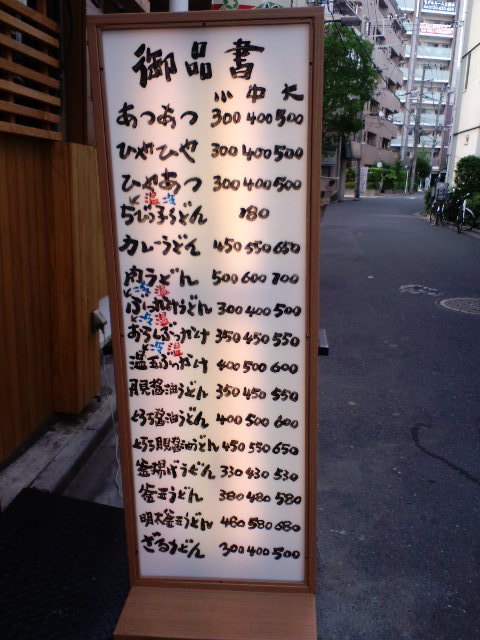 御品書
小 中 大
あつあつ 300 400 500
ひやひや 300 400 500
ひやあつ 300 400 500
温 冷
ちびっ子うどん 180
カレーうどん 450 550 650
肉うどん 500 600 700
冷 温
ぶっかけうどん 300 400 500
冷 温
おろしぶっかけ 350 450 550
冷 温
温玉ぶっかけ 400 500 600
月見醤油うどん 350 450 550
とろろ醤油うどん 400 500 600
とろろ月見醤油うどん 450 550 650
釜揚げうどん 330 430 530
釜玉うどん 380 480 580
明太釜玉うどん 480 580 680
ざるうどん 300 400 500